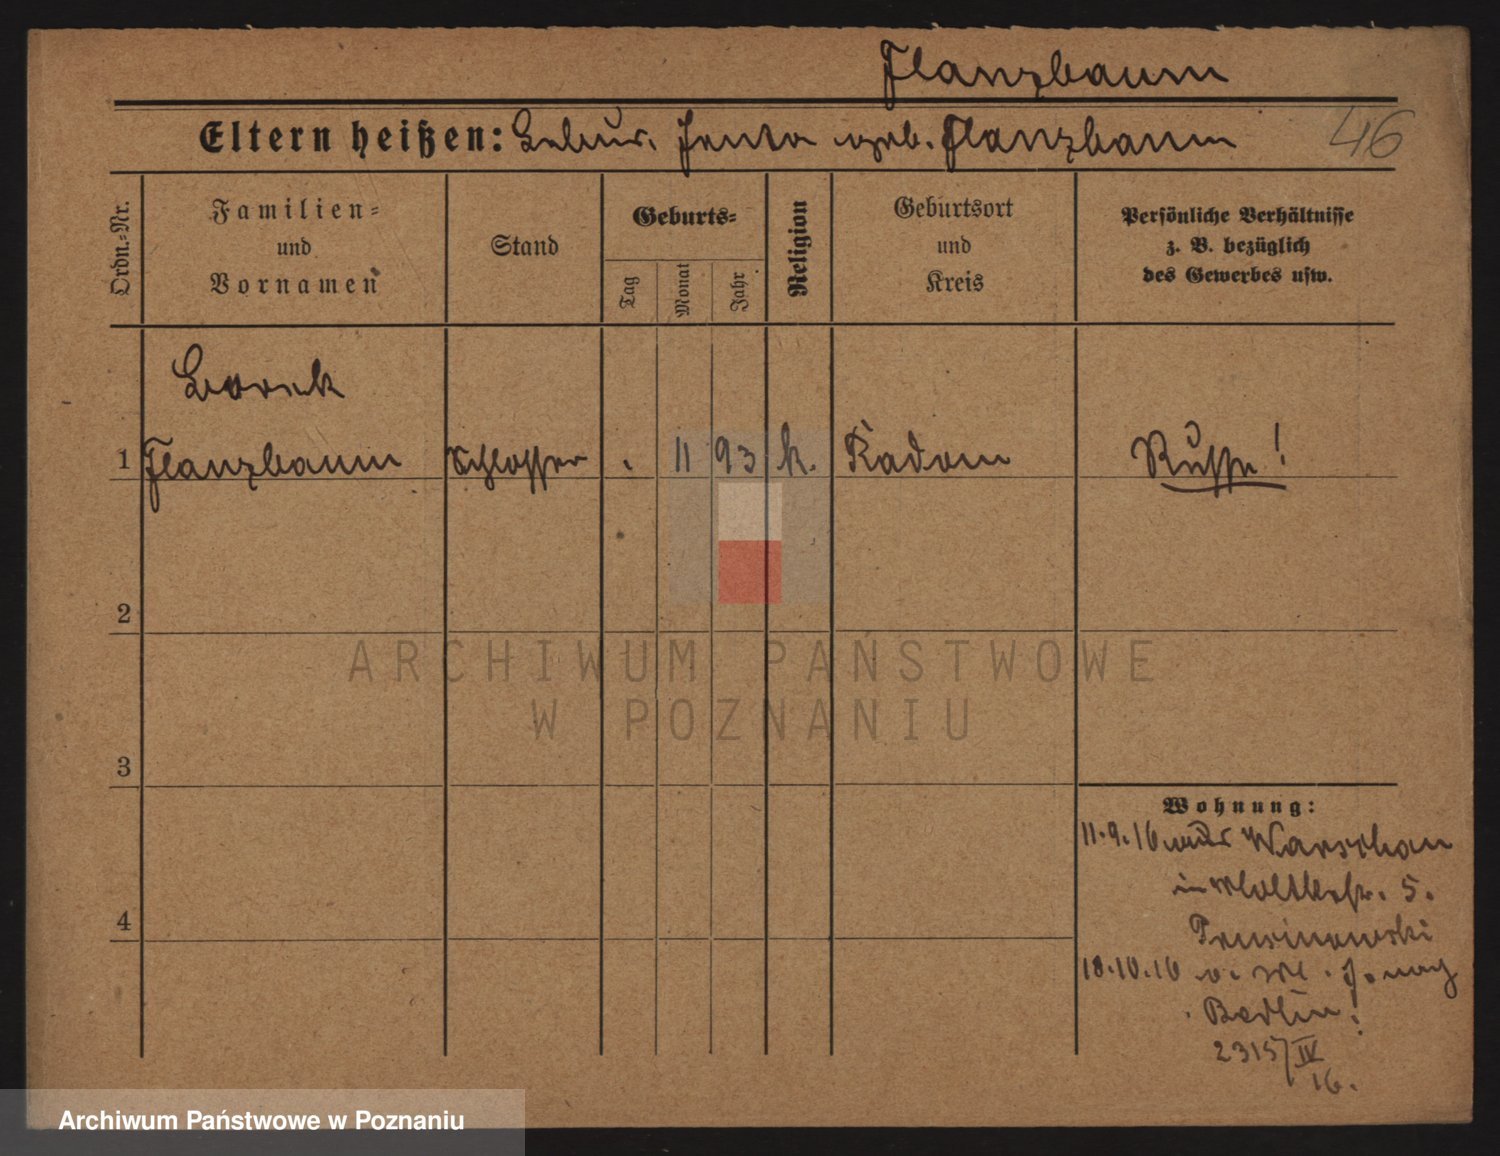 Flanzbaum
Eltern heißen: Jenta geb. Flanzbaum
46
Ordn.=Nr.
Familien=
und
Vornamen
Stand
Geburts=
Tag
Monat
Jahr
Religion
Geburtsort
und
Kreis
Persönliche Verhältnisse
z. B. bezüglich
des Gewerbes usw.
1 Flanzbaum Schlosser . 11 93 k. Radom Russe!
2
3
4
Wohnung:
11.9.16 aus Warschau
in Moltkestr. 5.
Prusinowski
18.10.16 nach
Berlin!
2315/IV
16.
ARCHIWUM PAŃSTWOWE
W POZNANIU
Archiwum Państwowe w Poznaniu